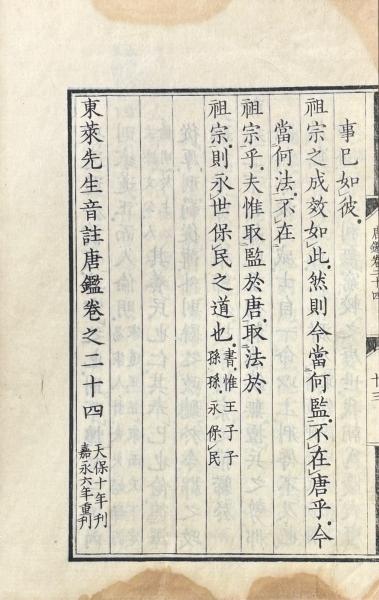 事已如彼
祖宗之成效如此然則今當何監不在唐乎今
當何法不在
祖宗乎夫惟取監於唐取法於
祖宗則永世保民之道也書惟王子子
孫孫永保民
東萊先生音註唐鑑卷之二十四
天保十年刊
嘉永六年重刊
唐鑑卷二十四
十三